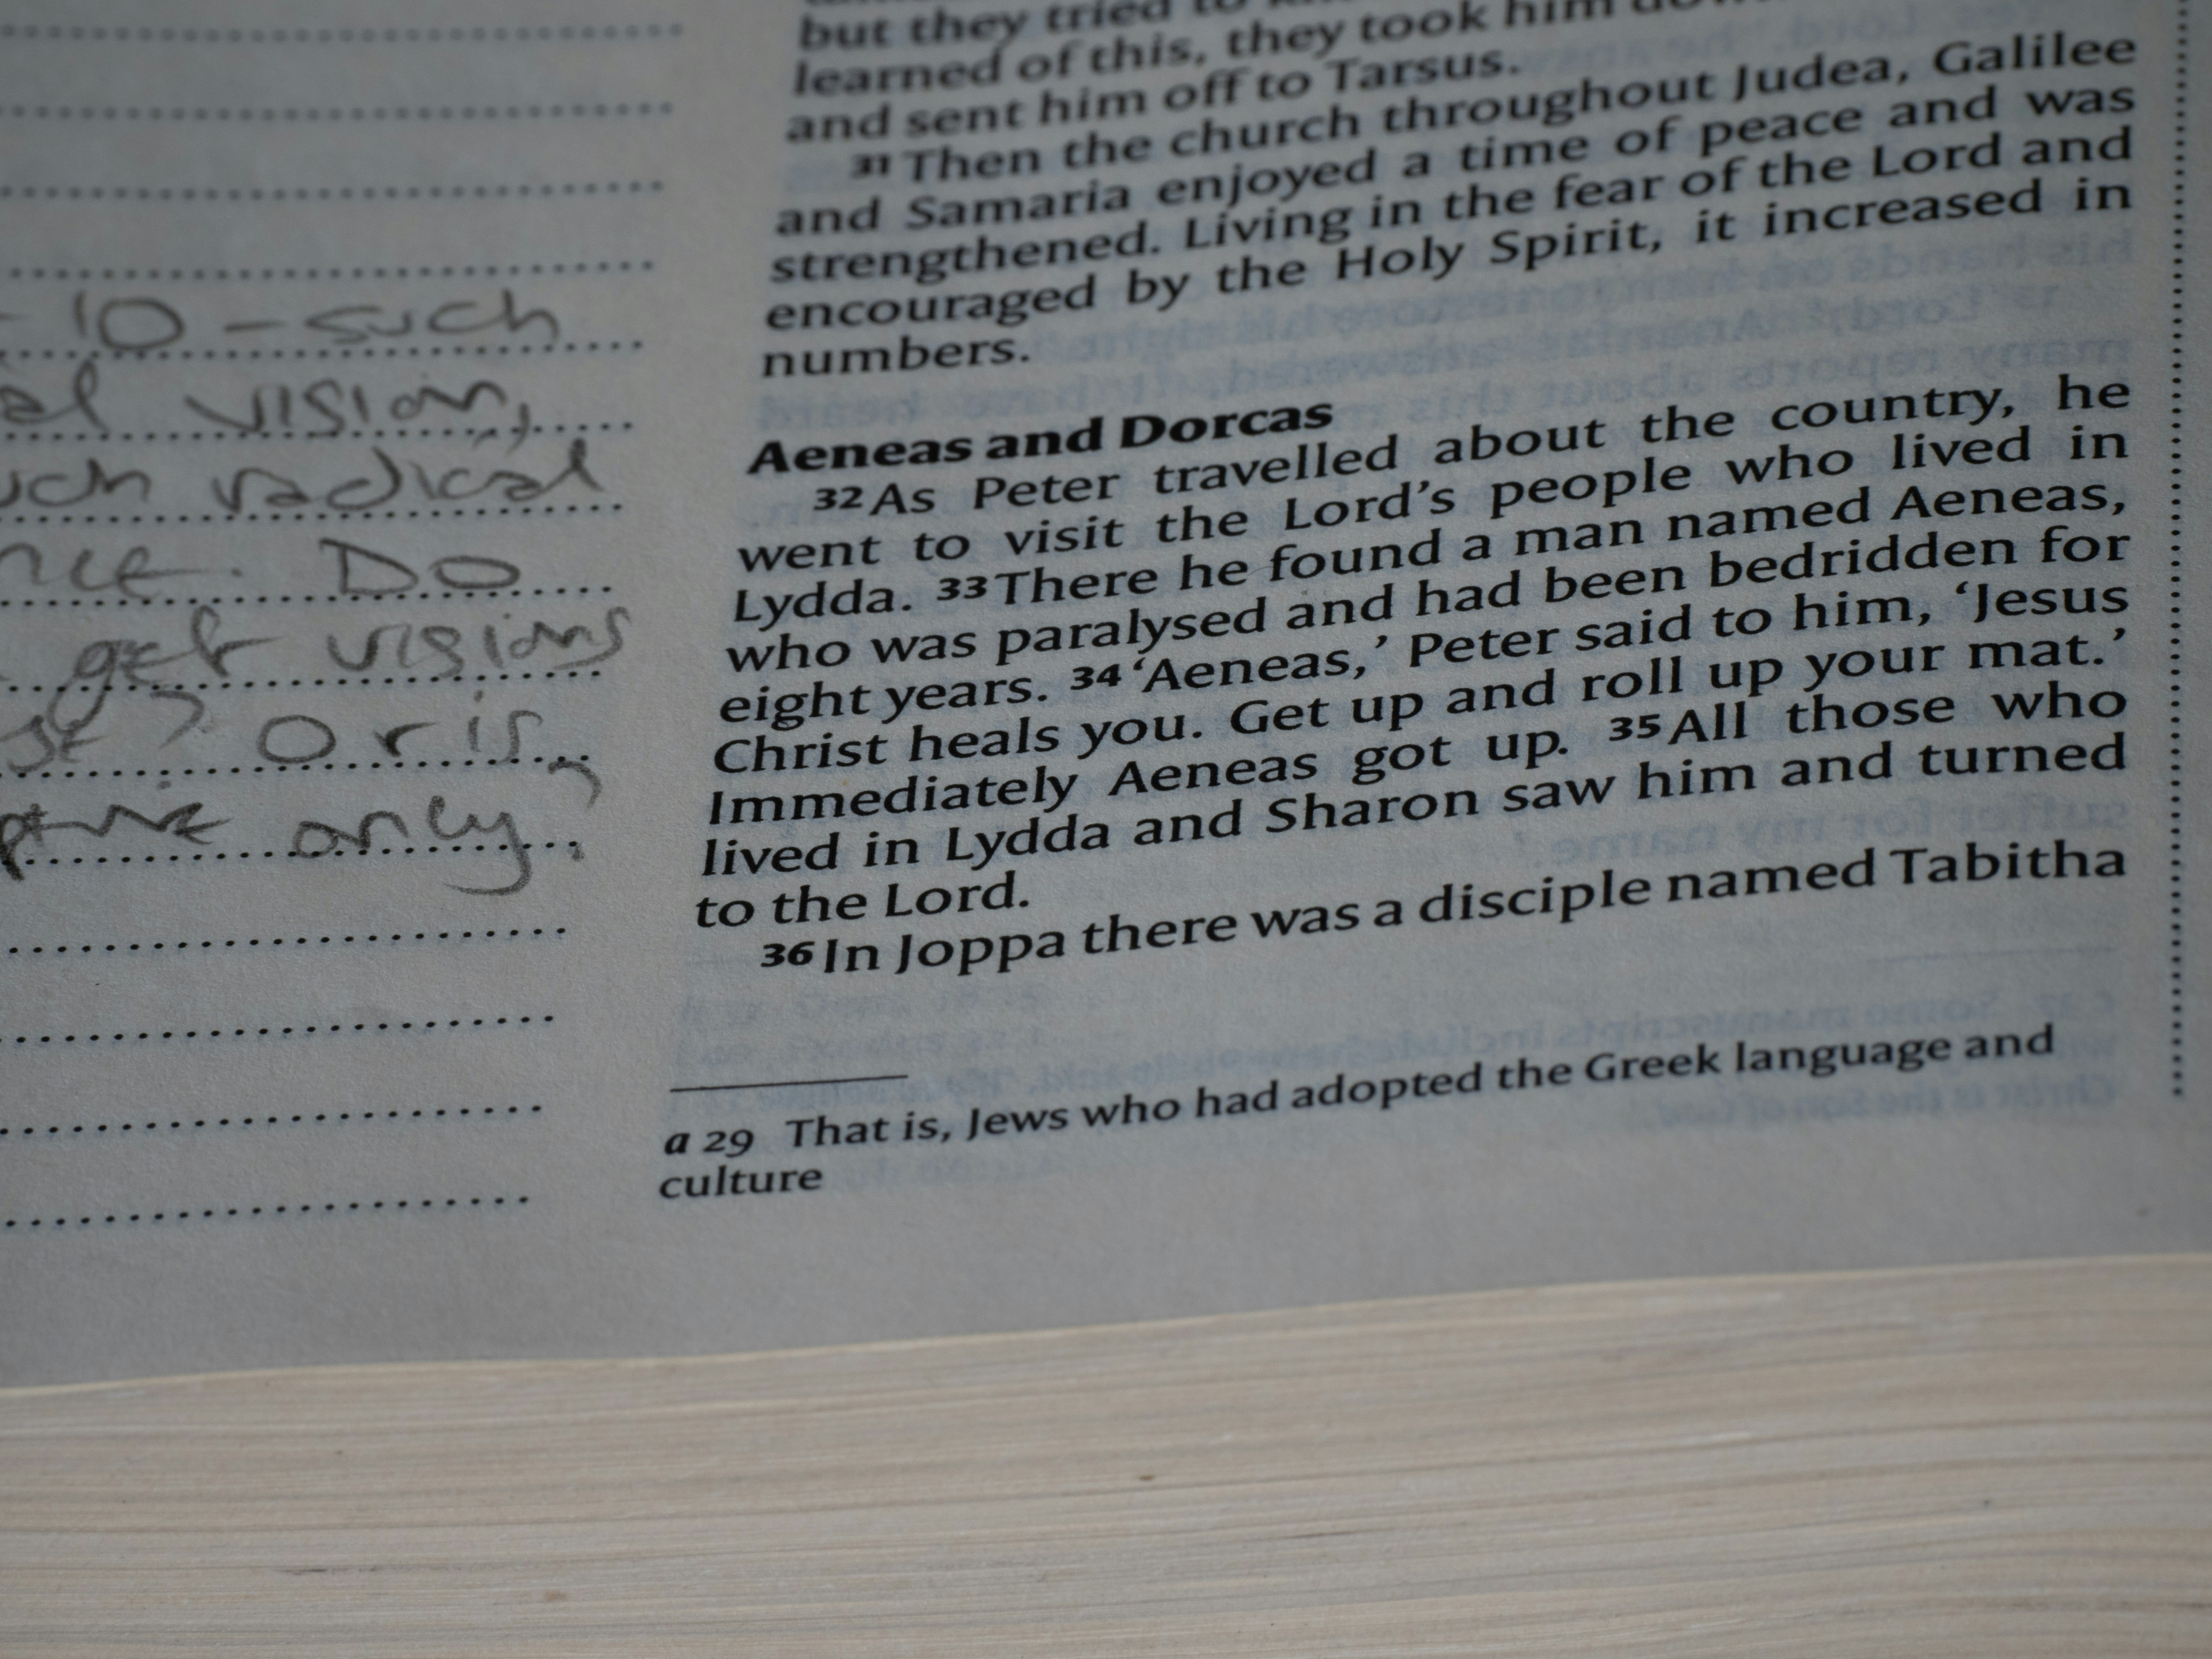 - 10 - such
vision,
radical
Do
get visions
? Or is
only?
but they tried to
learned of this, they took him
and sent him off to Tarsus.
31 Then the church throughout Judea, Galilee
and Samaria enjoyed a time of peace and was
strengthened. Living in the fear of the Lord and
encouraged by the Holy Spirit, it increased in
numbers.
Aeneas and Dorcas
32 As Peter travelled about the country, he
went to visit the Lord’s people who lived in
Lydda. 33 There he found a man named Aeneas,
who was paralysed and had been bedridden for
eight years. 34 ‘Aeneas,’ Peter said to him, ‘Jesus
Christ heals you. Get up and roll up your mat.’
Immediately Aeneas got up. 35 All those who
lived in Lydda and Sharon saw him and turned
to the Lord.
36 In Joppa there was a disciple named Tabitha
a 29 That is, Jews who had adopted the Greek language and
culture